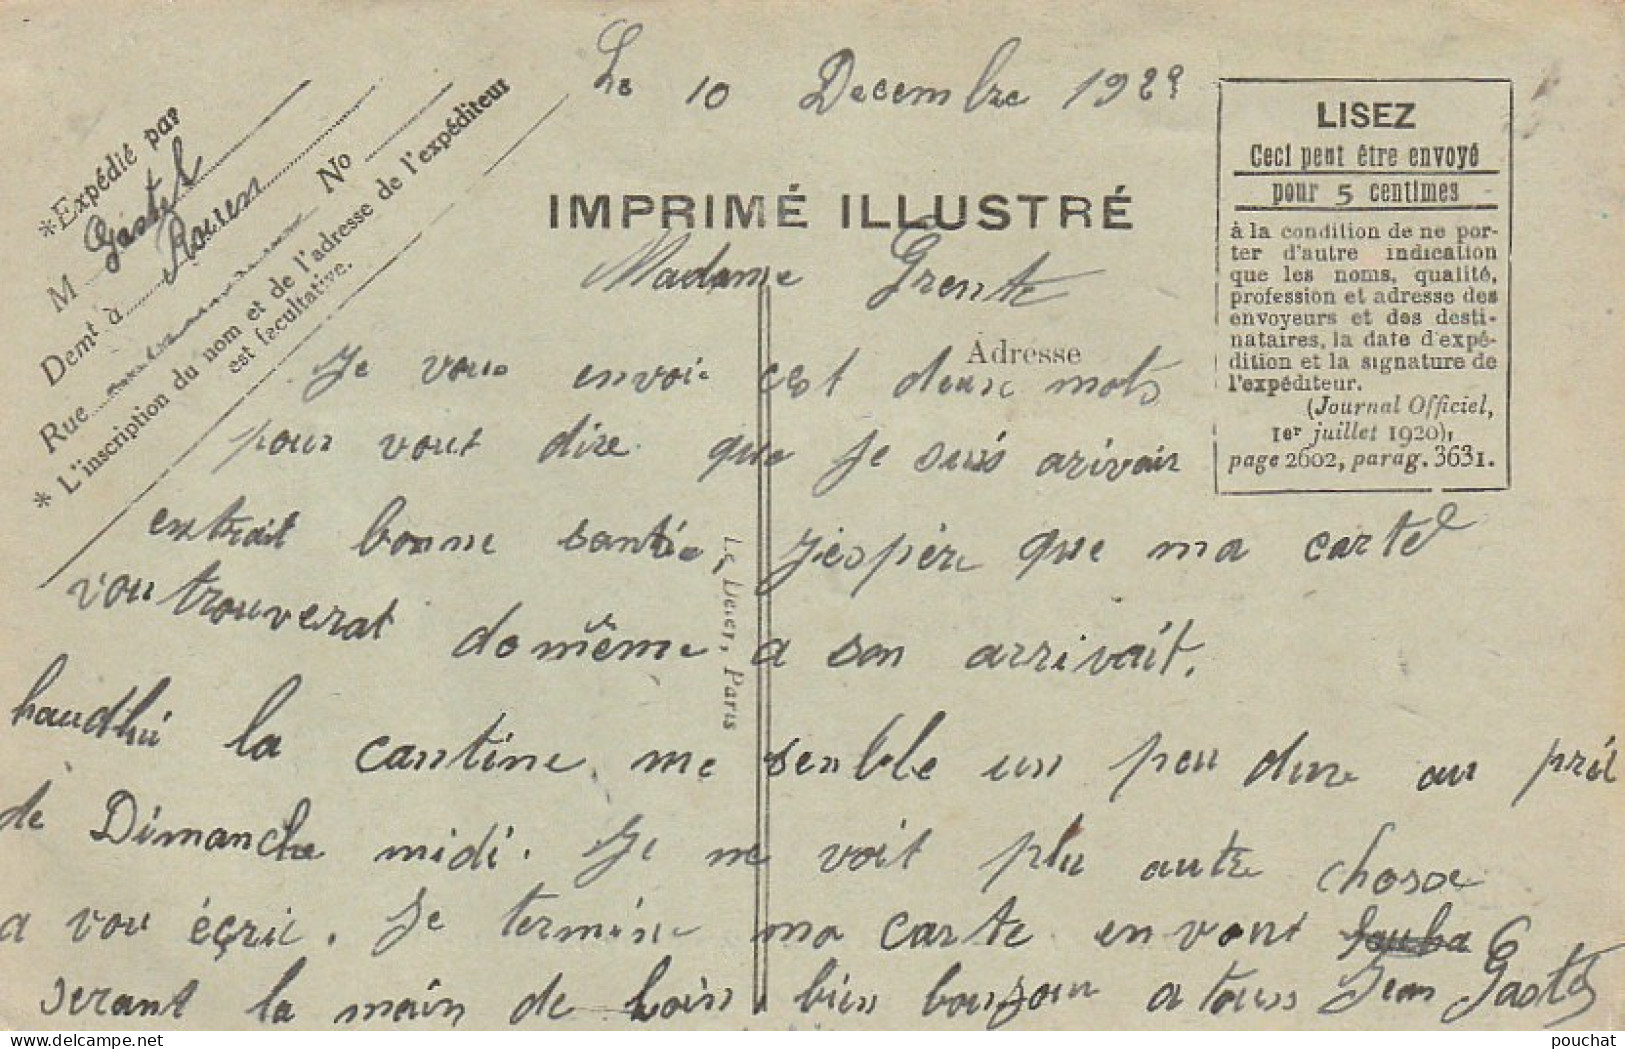 Le 10 Decembre 1929
*Expédié par
M Gastel
Demt à Rouen
Rue No
* L'inscription du nom et de l'adresse de l'expéditeur
est facultative.
IMPRIMÉ ILLUSTRÉ
LISEZ
Ceci peut être envoyé
pour 5 centimes
à la condition de ne por-
ter d'autre indication
que les noms, qualité,
profession et adresse des
envoyeurs et des desti-
nataires, la date d'expé-
dition et la signature de
l'expéditeur.
(Journal Officiel,
1er juillet 1920),
page 2602, parag. 3631.
Madame Grente
Adresse
Je vous envoie cest deux mots
pour vout dire que je suis arivair
extrait bonne santée, j'espère que ma carte
vou trouverat do même a son arrivait.
haudhui la cantine me senble un peu dure au prèi
de Dimanche midi. Je ne voit plu autre chosse
a vou éçrie. Je termine ma carte en vout
serant la main de loin, bien bonjour a touss Jean Gastel
Le Deley, Paris
pouchat